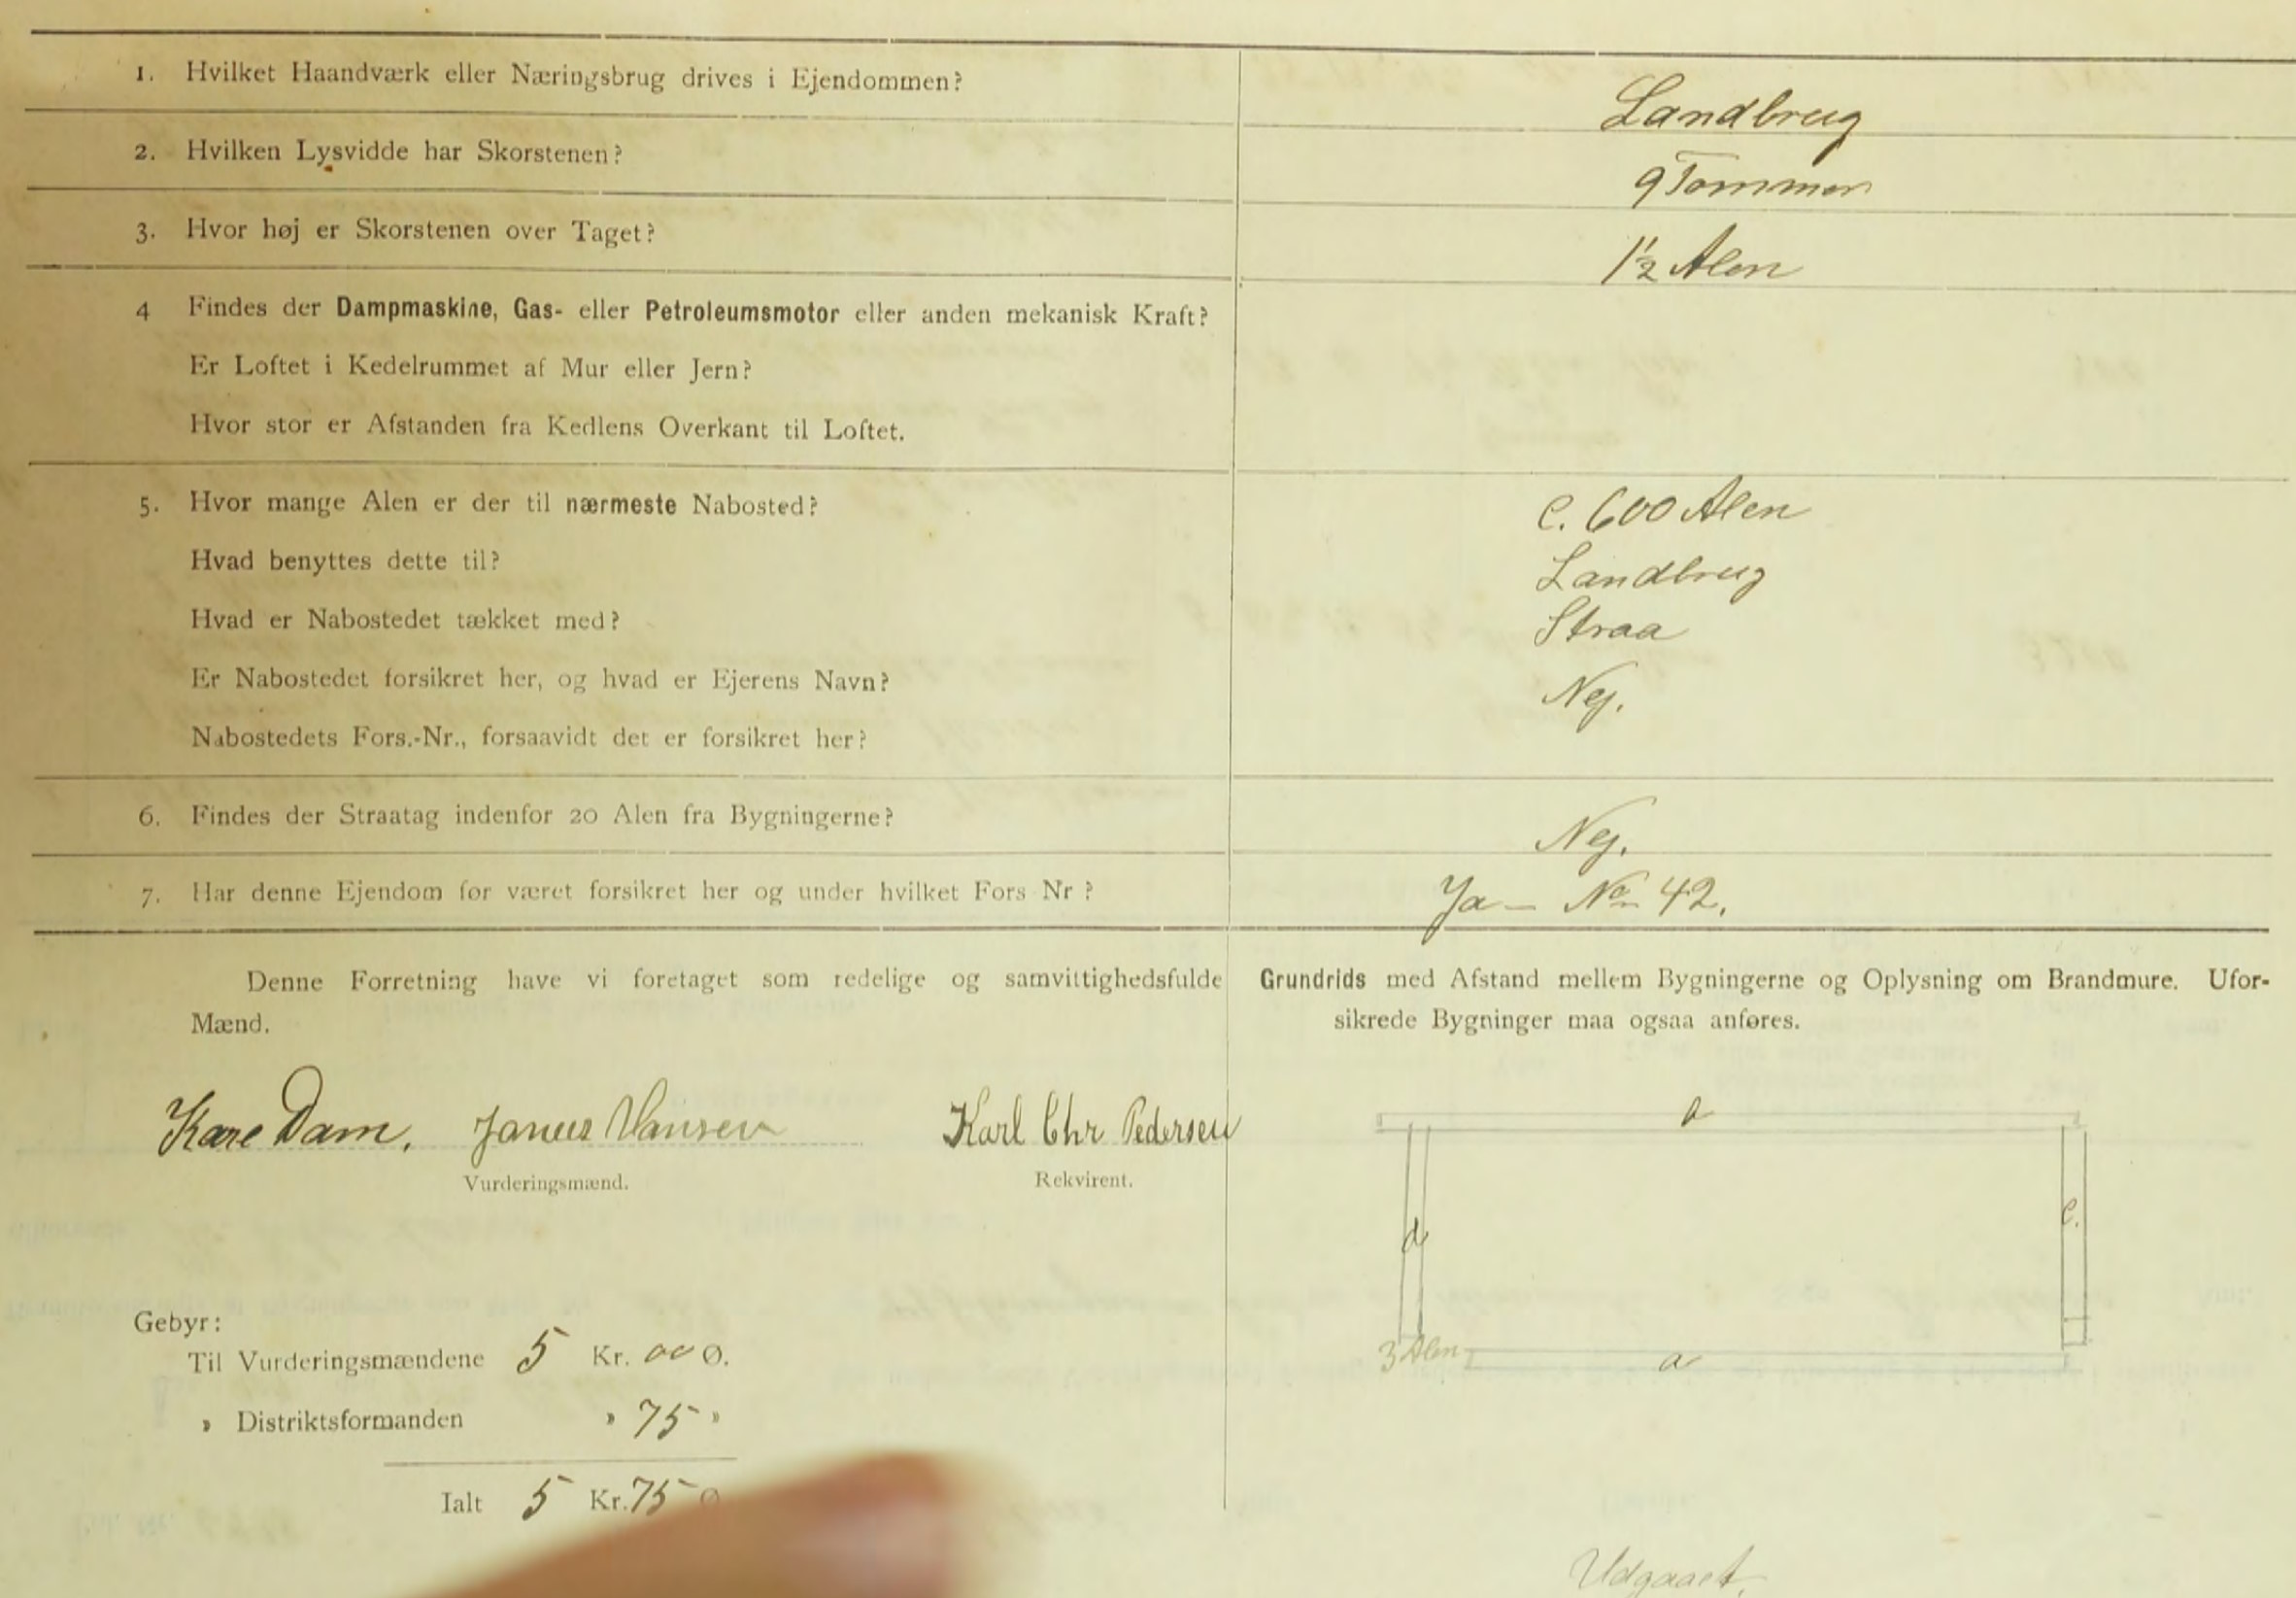 1. Hvilket Haandværk eller Næringsbrug drives i Ejendommen? Landbrug
2. Hvilken Lysvidde har Skorstenen? 9 Tommer
3. Hvor høj er Skorstenen over Taget? 1½ Alen
4 Findes der Dampmaskine, Gas- eller Petroleumsmotor eller anden mekanisk Kraft?
Er Loftet i Kedelrummet af Mur eller Jern?
Hvor stor er Afstanden fra Kedlens Overkant til Loftet.
5. Hvor mange Alen er der til nærmeste Nabosted? C. 600 Alen
Hvad benyttes dette til? Landbrug
Hvad er Nabostedet tækket med? Straa
Er Nabostedet forsikret her, og hvad er Ejerens Navn? Nej.
Nabostedets Fors.-Nr., forsaavidt det er forsikret her?
6. Findes der Straatag indenfor 20 Alen fra Bygningerne? Nej.
7. Har denne Ejendom før været forsikret her og under hvilket Fors Nr? Ja — No 42.
Denne Forretning have vi foretaget som redelige og samvittighedsfulde
Mænd.
Dam. Hansen Karl Chr Pedersen
Vurderingsmænd. Rekvirent.
Gebyr:
Til Vurderingsmændene 5 Kr. 00 Ø.
" Distriktsformanden " 75 "
Ialt 5 Kr. 75 Ø
Grundrids med Afstand mellem Bygningerne og Oplysning om Brandmure. Ufor-
sikrede Bygninger maa ogsaa anføres.
d c.
3 Alen a
Udgaaet.